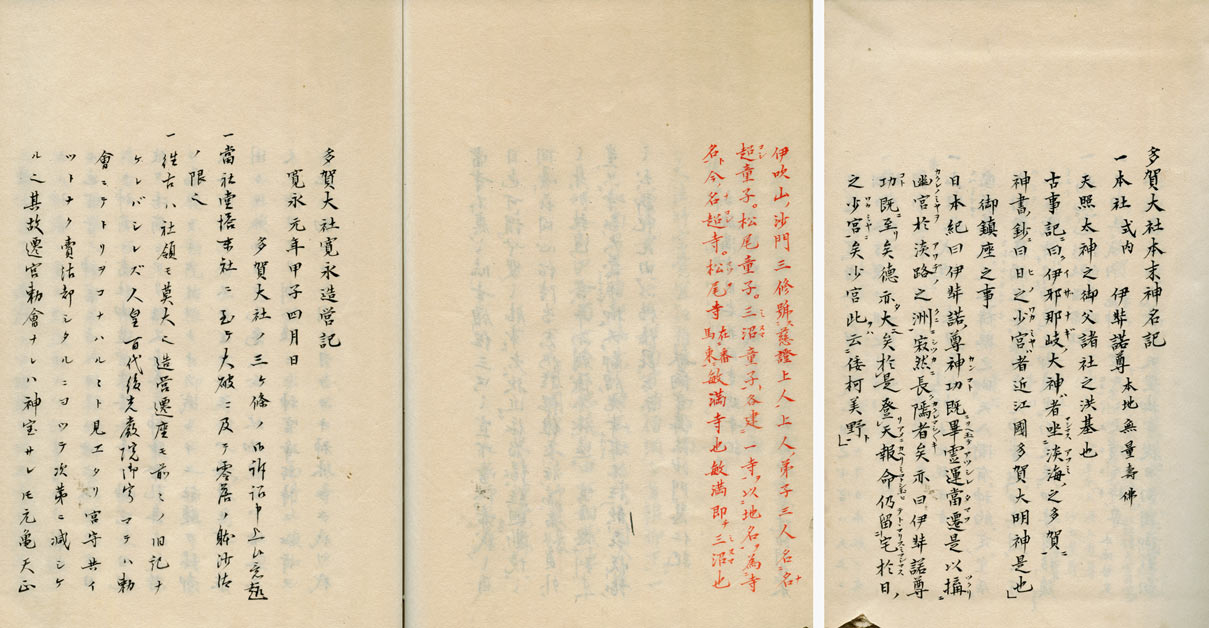 多賀大社本末神名記
一本社 式内 伊弉諾尊 本地無量壽佛
天照太神之御父諸社之洪基也
古事記曰伊邪那岐大神者坐淡海之多賀
神書鈔曰日之少宮者近江國多賀大明神是也
御鎮座之事
日本紀曰伊弉諾尊神功既畢靈運當遷是以搆
幽宮於淡路之洲寂然長隱者矣亦曰伊弉諾尊
功既至矣德亦大矣於是登天報命仍留宅於日
之少宮矣少宮此云倭柯美野
伊吹山沙門三修號慈證上人上人弟子三人名名
超童子。松尾童子。三沼童子各建一寺以地名為寺
名今名超寺。松尾寺在番馬東敏満寺也敏満即三沼也
多賀大社寛永造営記
寛永元年甲子四月日
多賀大社ノ三ヶ條ノ御訴詔申上
一當社堂塔末社ニ至テ大破ニ及ヒ零落ノ躰沙汰
ノ限
一往古ハ社領モ莫大 造営遷座モ前々ノ旧記ナ
ケレバシレズ人皇百代後光嚴院御宇マテハ勅
會ニテトリヲコナハルヽト見エタリ宮守共イ
ツトナク賣沽却シタルニヨツテ次第ニ減シケ
ル 其故遷宮勅會ナレハ神宝サレ氏元亀天正